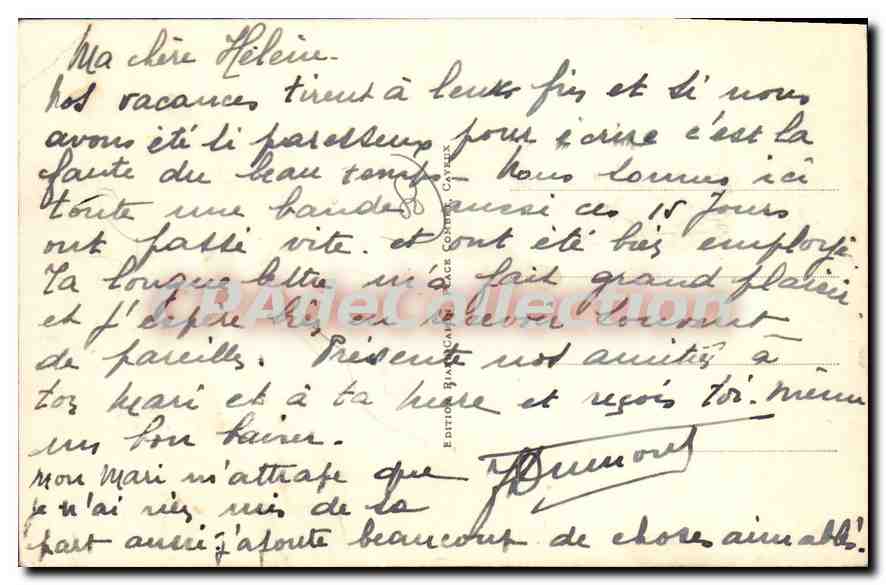 Ma chère Hélène.
Nos vacances tirent à leurs fins et si nous
avons été si paresseux pour écrire c'est la
faute du beau temps - Nous sommes ici
toute une bande aussi ces 15 jours
ont passé vite. et ont été bien employé.
Ta longue lettre m'a fait grand plaisir
et j'espère bien en recevoir souvent
de pareilles. Présente nos amitiés à
ton Mari et à ta mère et reçois toi-même
un bon baiser.
JDumont
Mon Mari m'attrape que
je n'ai rien mis de sa
part aussi j'ajoute beaucoup de choses aimables.
CPAdeCollection
CAYEUX